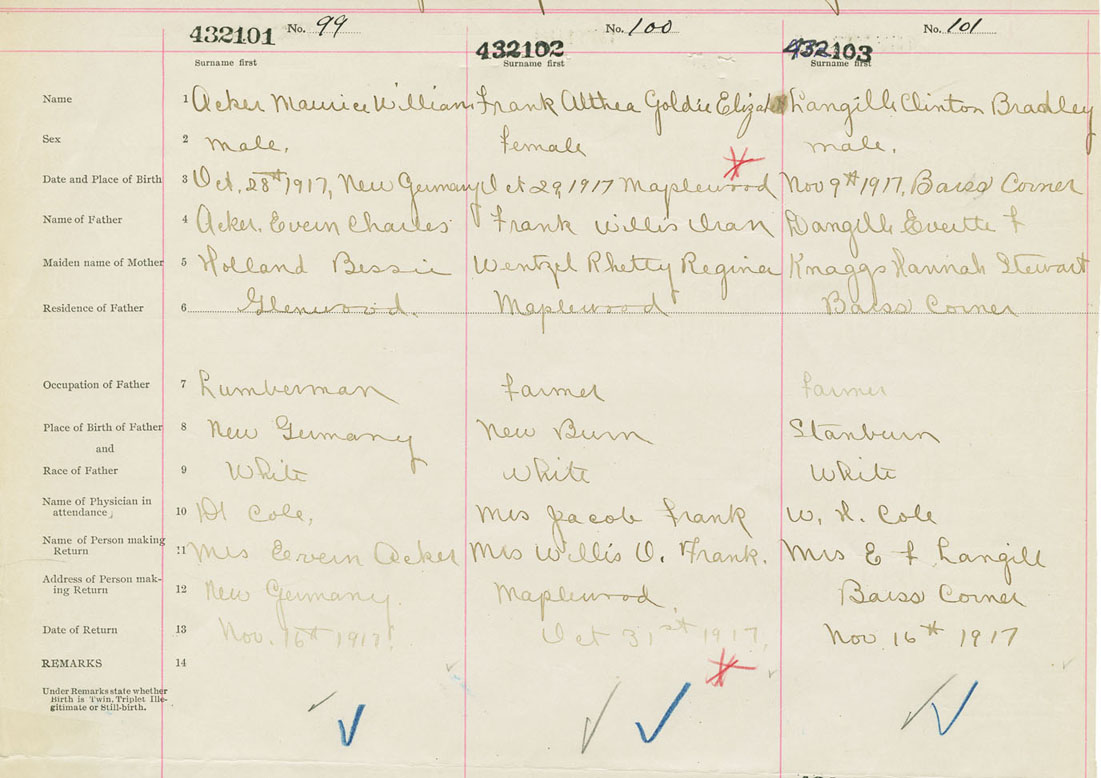 No. 99 No. 100 No. 101
432101 432102 432103
Surname first Surname first Surname first
Name 1 Acker Maurice William Frank Althea Goldie Langille Clinton Bradley
Sex 2 male. female male.
Date and Place of Birth 3 Oct. 28th 1917, New Germany Oct 29, 1917 Maplewood Nov 9th 1917, Barss Corner
Name of Father 4 Acker, Evern Charles Frank Willis
Maiden name of Mother 5 Holland Bessie Wentzel Rhetty Regina Knaggs Hannah Stewart
Residence of Father 6 Glenwood. Maplewood Barss Corner
Occupation of Father 7 Lumberman farmer farmer
Place of Birth of Father 8 New Germany New Burn Stanburn
and
Race of Father 9 White White White
Name of Physician in
attendance 10 Dr Cole, Mrs Jacob Frank W. H. Cole
Name of Person making
Return 11 Mrs Evern Acker Mrs Willis O. Frank. Mrs E F Langill
Address of Person mak-
ing Return 12 New Germany. Maplewood, Barss Corner
Date of Return 13 Nov. 16th 1917. Oct 31st 1917, Nov. 16th 1917
REMARKS 14
Under Remarks state whether
Birth is Twin, Triplet Ille-
gitimate or Still-birth.